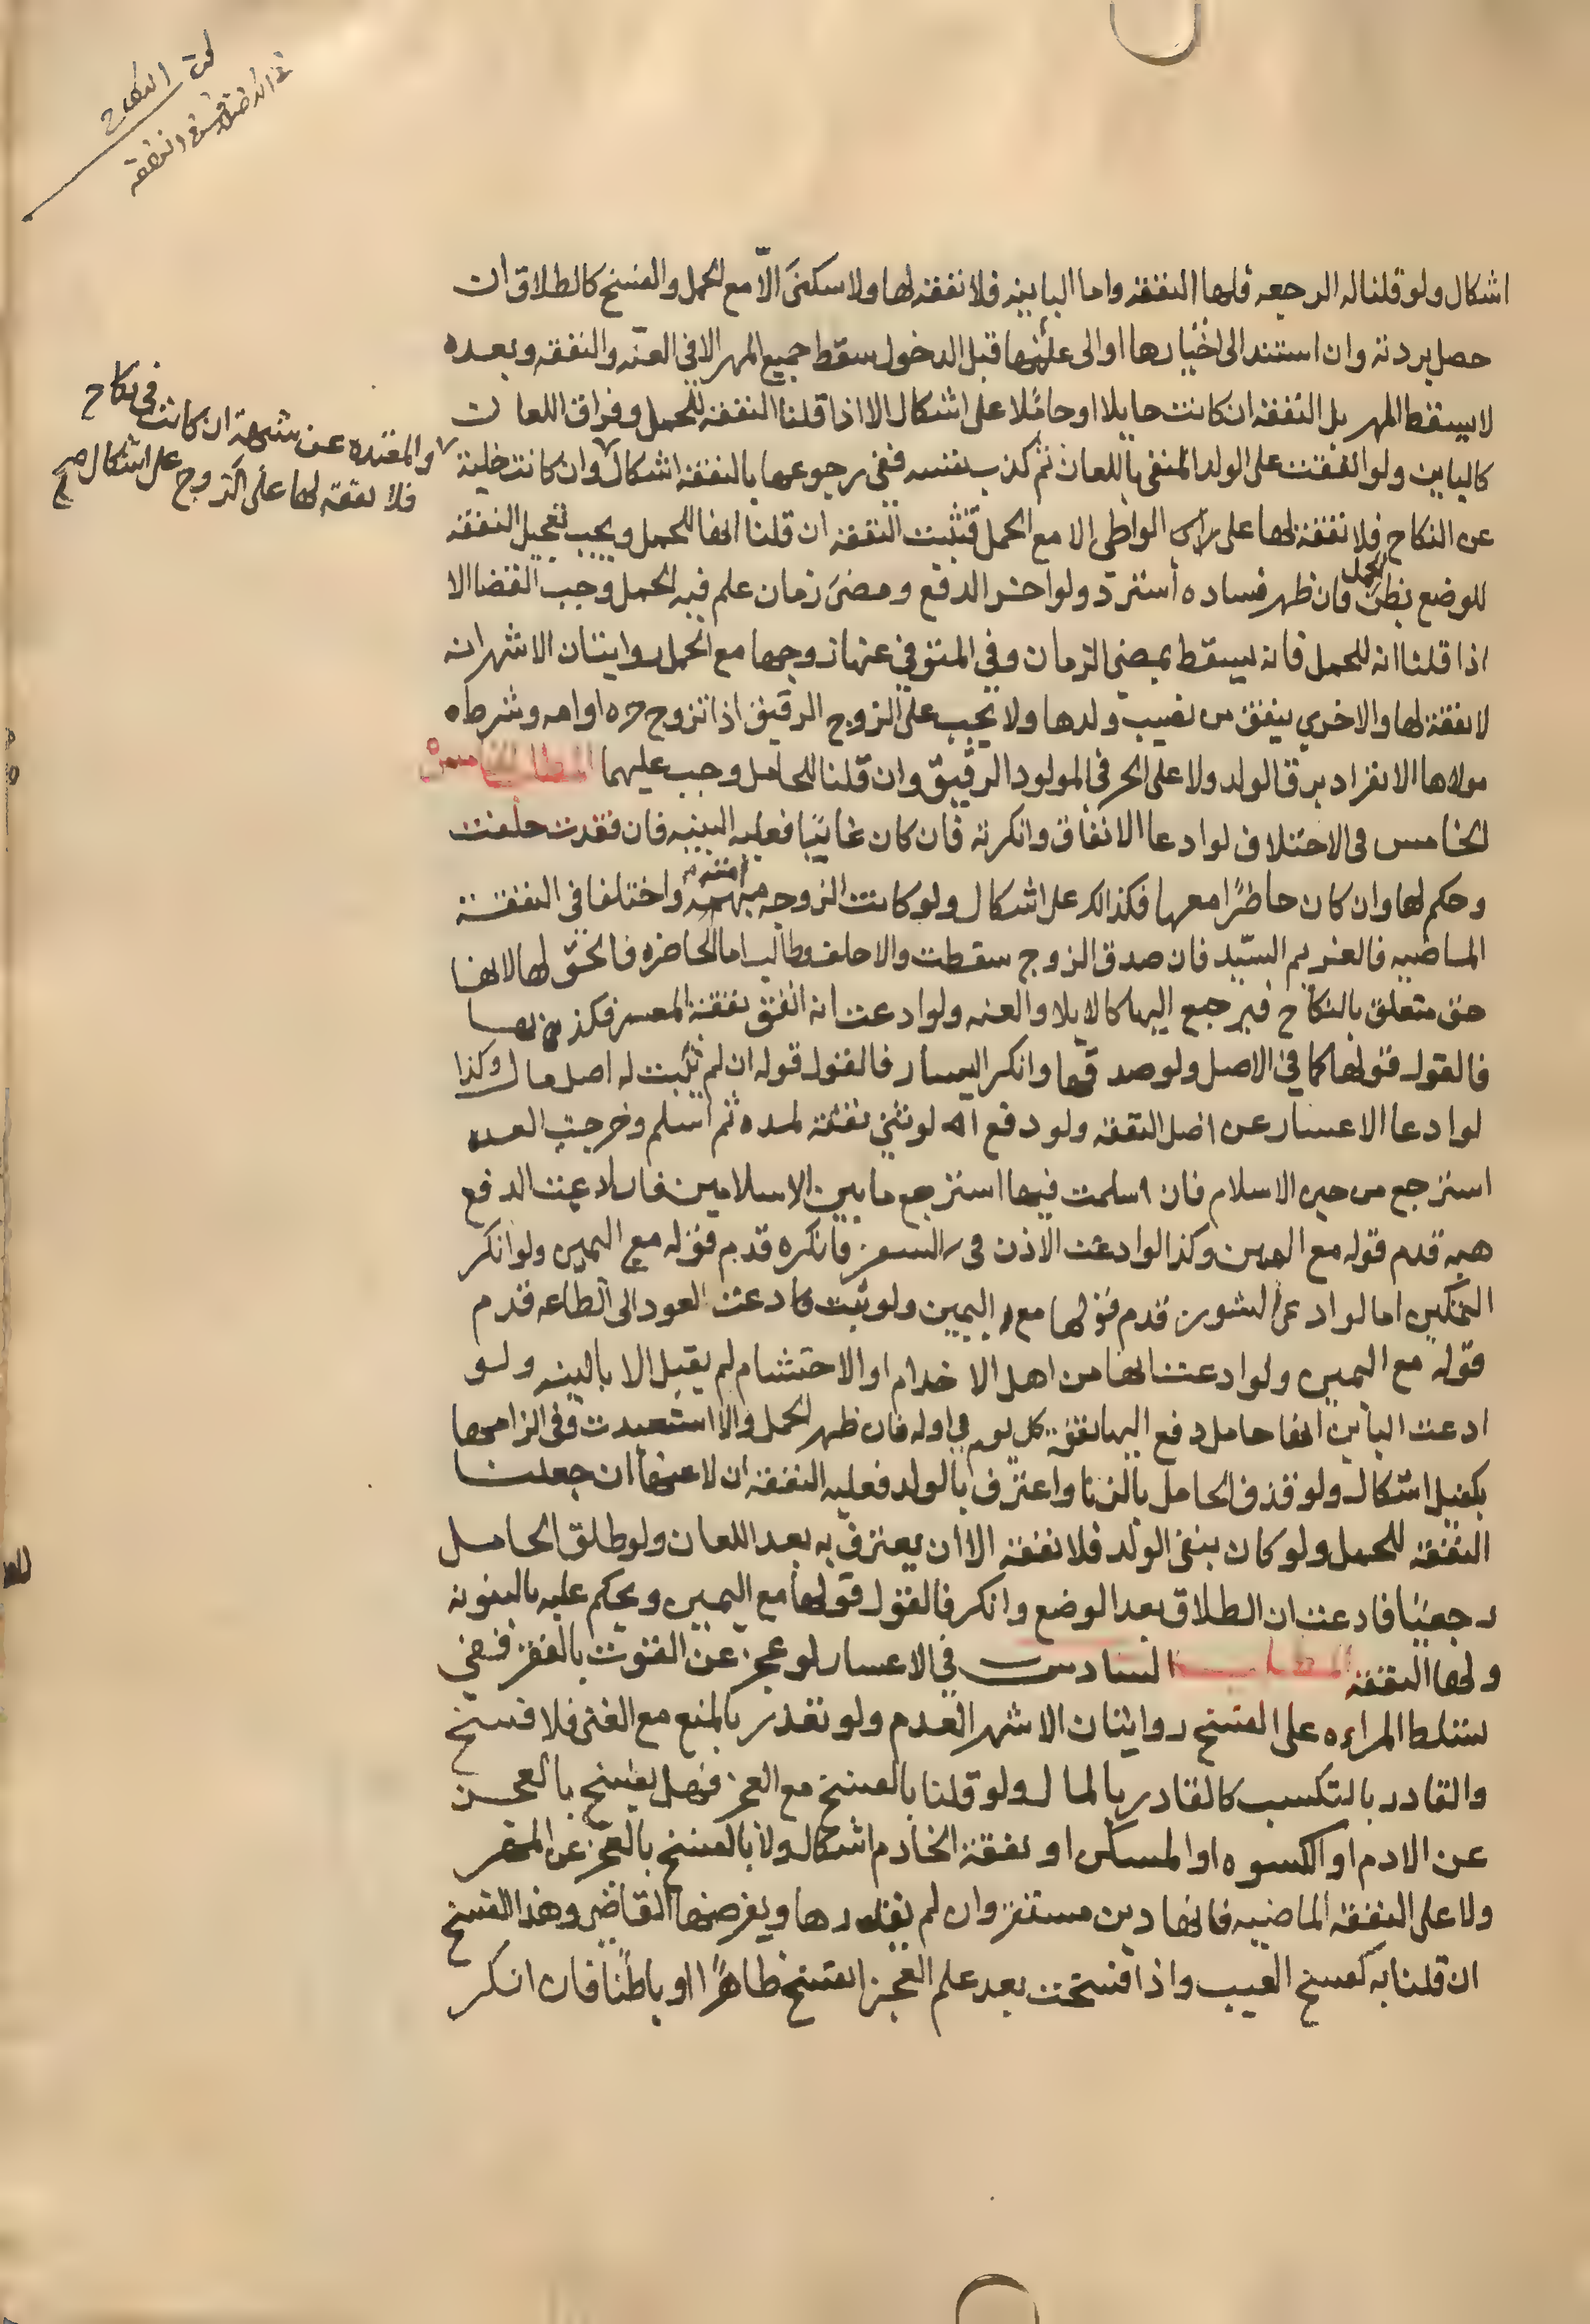 كتاب النكاح
النفقة
اشكال ولو قلنا له الرجعه فلها النفقه واما الباينه فلا نفقه لها ولا سكنى الّا مع الحمل والفسخ كالطلاق ان
حصل بردته وان استند الى اختيارها او الى عيبها قبل الدخول سقط جميع المهر الا في العنّه والنفقه وبعده
لا يسقط المهر بل النفقه ان كانت حايلا او حاملا على اشكال الا اذا قلنا النفقه للحمل وفراق اللعان
كالباين ولو انفقت على الولد المنفى باللعان ثم كذب بنفسه ففي رجوعها بالنفقه اشكال وان كانت خلية
والمعتده عن شبهة ان كانت في نكاح
فلا نفقه لها على الزوج على اشكال صح
عن النكاح فلا نفقة لها على راى الواطي الا مع الحمل فتثبت النفقه ان قلنا انها للحمل ويجب تعجيل النفقه
للوضع بظن الحمل فان ظهر فساده أسترد ولو اخر الدفع ومضى زمان علم فيه الحمل وجب القضا الا
اذا قلنا انه للحمل فانه يسقط بمضي الزمان وفي المتوفي عنها زوجها مع الحمل روايتان الاشهر انه
لا نفقة لها والاخري ينفق من نصيب ولدها ولا يجب على الزوج الرقيق اذا تزوج حره او امه وشرط
مولاها الانفراد برق الولد ولا على الحر في المولود الرقيق وان قلنا للحامل وجب عليهما المطلب
الخامس في الاختلاف لو ادعا الانفاق وانكرته فان كان غايبا فعليه البينه فان فقدت حلفت
وحكم لها وان كان حاضرًا معها فكذالك على اشكال ولو كانت الزوجه امته واختلفا في النفقة
الماضيه فالغريم السيّد فان صدق الزوج سقطت والا حلف وطالب اما الحاضره فالحق لها لانها
حق متعلق بالنكاح فيرجع اليها كالايلا والعنه ولو ادعت انه انفق نفقة المعسر فكذبها
فالقول قولها كما في الاصل ولو صدقها وانكر اليسار فالقول قوله ان لم يثبت له اصل مال وكذا
لو ادعا الاعسار عن اصل النفقه ولو دفع الوثني نفقة لمده ثم اسلم وخرجت العده
استرجع من حين الاسلام فان اسلمت فيها استرجع ما بين الاسلامين فان ادعت الدفع
هبه قدم قوله مع اليمين وكذا لو ادعت الاذن في السفر فانكره قدم قوله مع اليمين ولو انكر
التمكين اما لو ادعى النشوز قدم قولها مع اليمين ولو ثبت فادعت العود الى الطاعه قدم
قوله مع اليمين ولو ادعت انها من اهل الاخدام او الاحتشام لم يقبل الا بالبينه ولو
ادعت الباين انها حامل دفع اليها نفقة كل يوم في اوله فان ظهر الحمل والا استعيدت وفي الزامها
بكفيل اشكال ولو قذف الحامل بالزنا واعترف بالولد فعليه النفقة ان لاعنها ان جعلنا
النفقه للحمل ولو كان ينفى الولد فلا نفقه الا ان يعترف به بعد اللعان ولو طلق الحامل
رجعيّا فادعت ان الطلاق بعد الوضع وانكر فالقول قولها مع اليمين ويحكم عليه بالبينونة
ولها النفقه المطلب السادس في الاعسار لو عجز عن القوت بالفقر ففي
تسلط المراءه على الفسخ روايتان الاشهر العدم ولو تعذر بالمنع مع الغنى فلا فسخ
والقادر بالتكسب كالقادر بالمال ولو قلنا بالفسخ مع العجز فهل يفسخ بالعجز
عن الادم او الكسوه او المسكن او نفقة الخادم اشكال ولا بالفسخ بالعجز عن المهر
ولا على النفقة الماضيه فانها دين مستقر وان لم يقدرها ويفرضها القاضي وهذا الفسخ
ان قلنا به كفسخ العيب واذا فسخت بعد علم العجز انفسخ ظاهرًا او باطنًا فان انكر